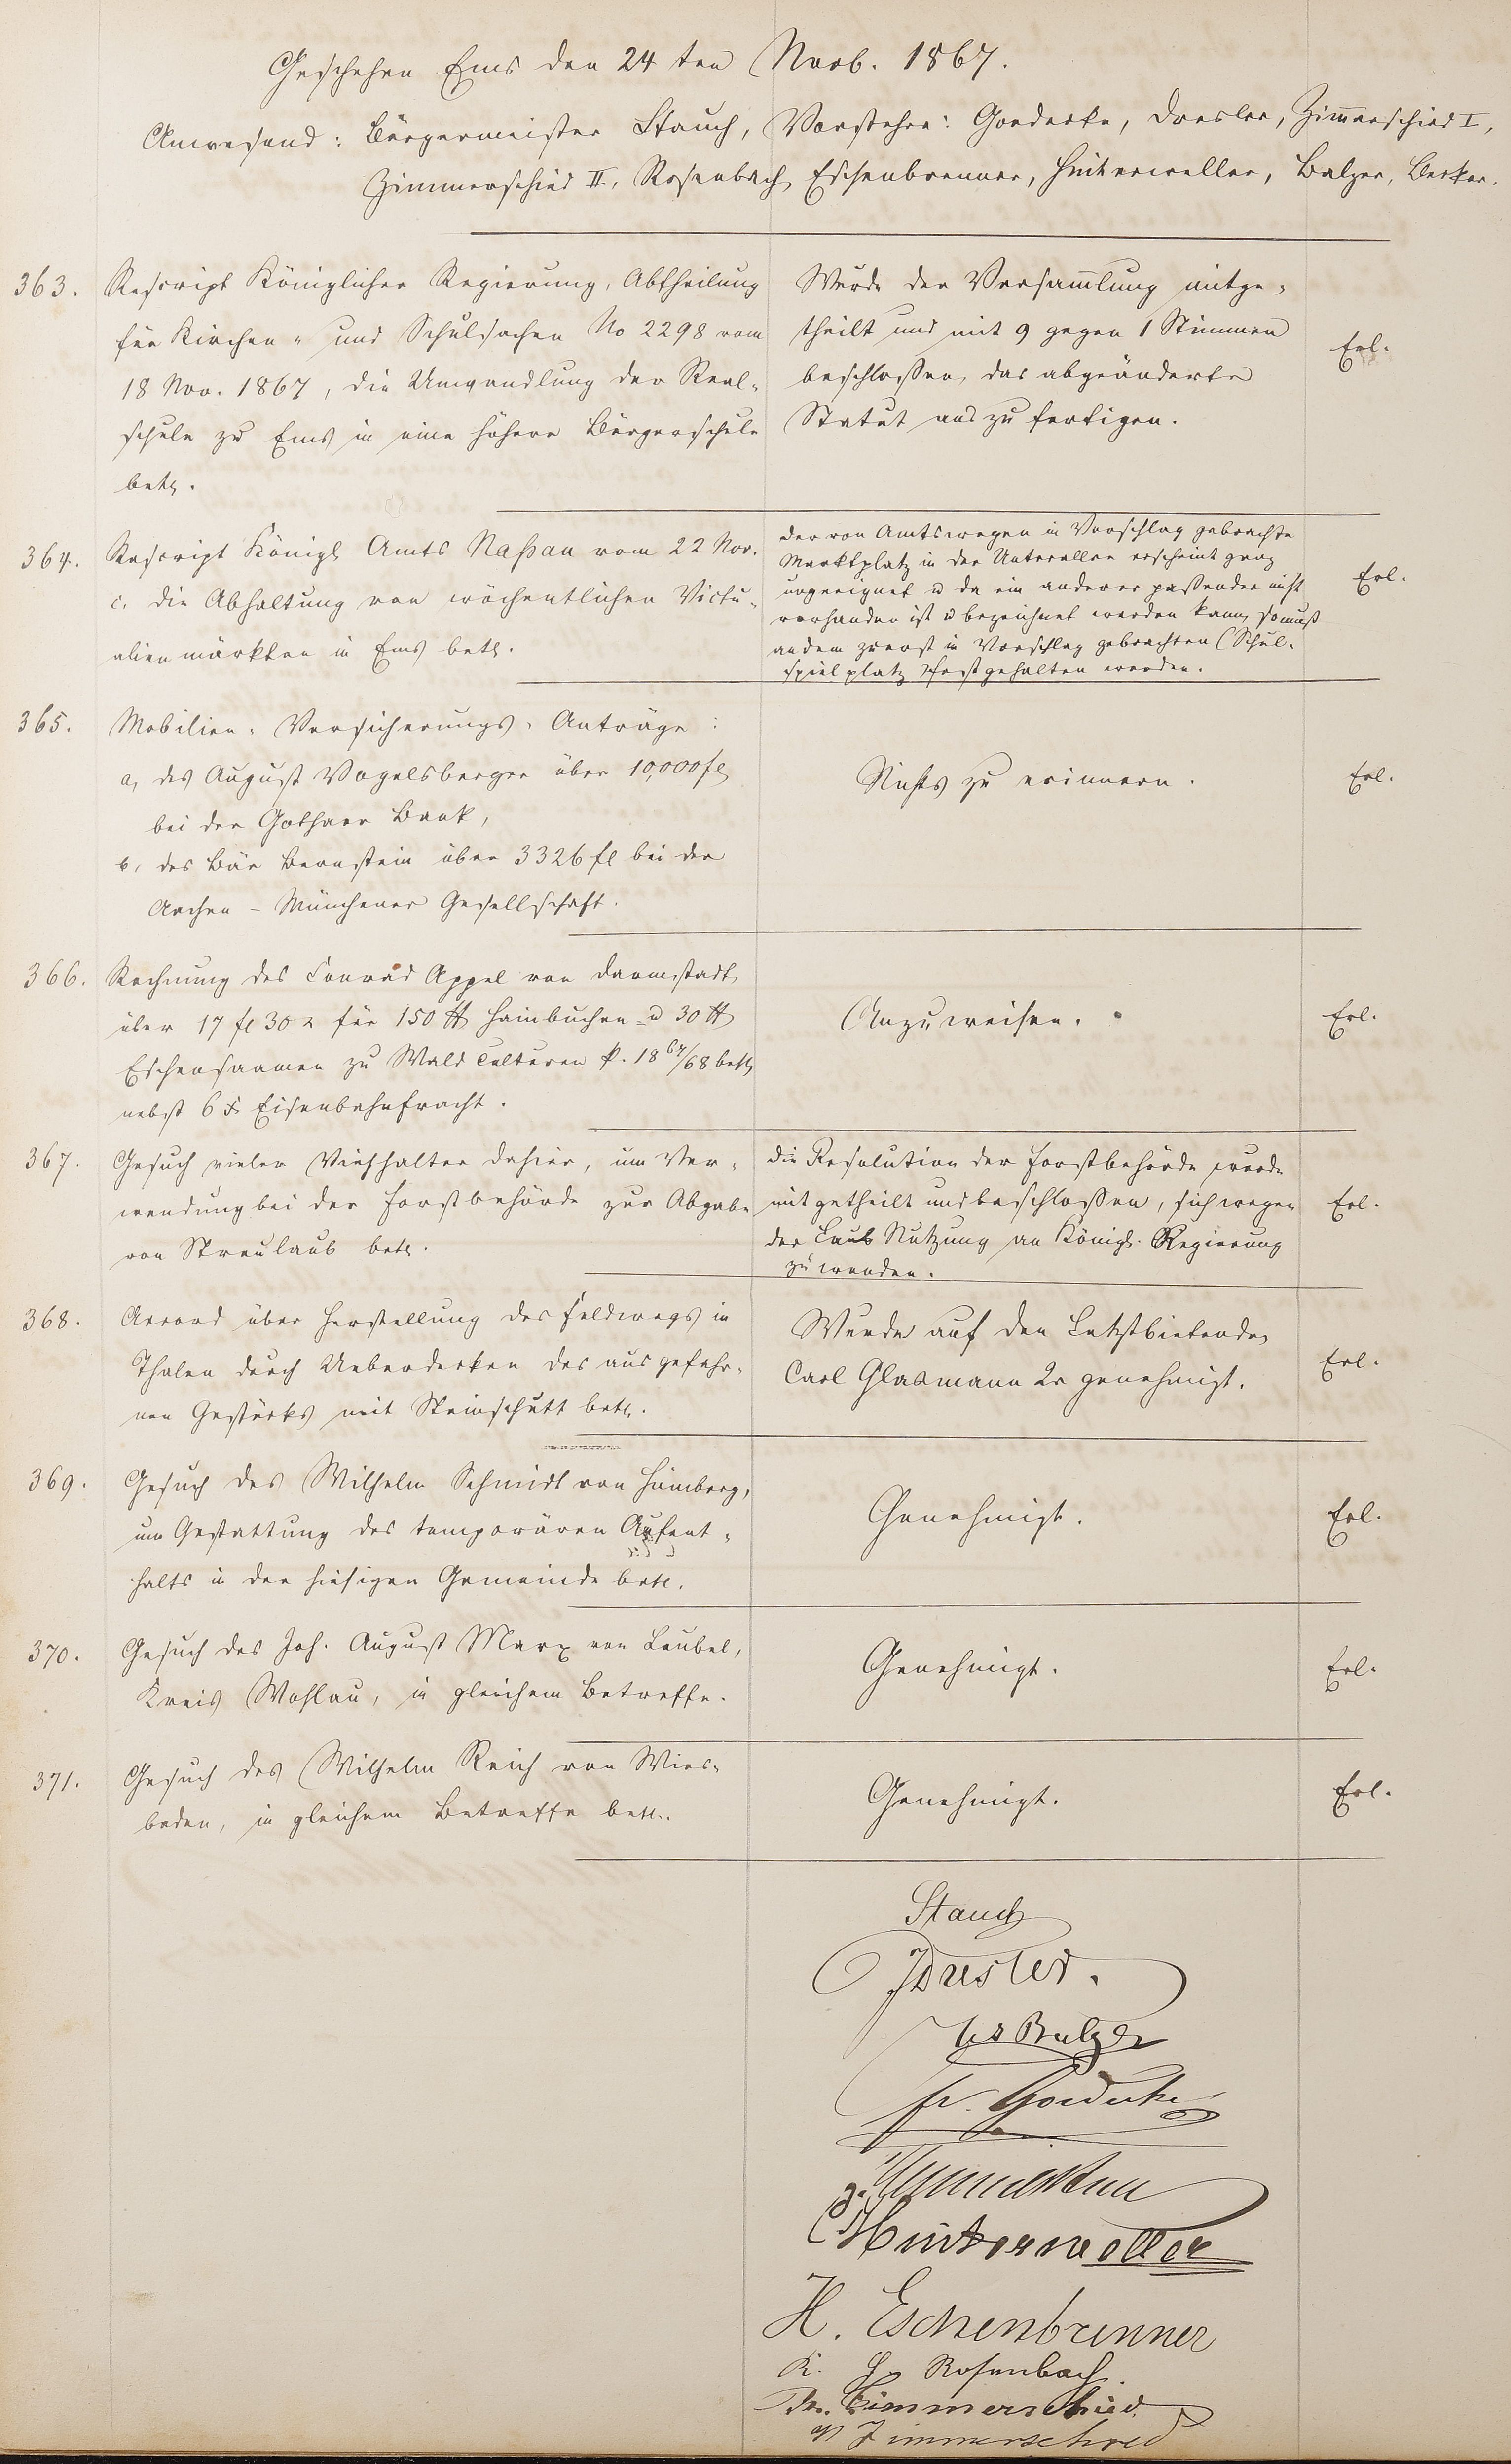 Geschehen Ems den 24ten Novb. 1867.
Anwesend: Bürgermeister Stauch, Vorsteher: Goedecke, Dresler, Zimmerschied I,
Zimmerschied II, Rosenbach, Eschenbrenner, Hinterweller, Balzer, Becker.
363.
Rescript Königlicher Regierung, Abtheilung
für Kirchen- und Schulsachen No 2298 vom
18 Nov. 1867, die Umwandlung der Real-
schule zu Ems in eine höhere Bürgerschule
betr.
Wurde der Versam̄lung mitge-
theilt und mit 9 gegen 1 Stimmen
beschloßen, das abgeänderte
Statut aus zu fertigen.
Erl.
364.
Rescript Königl Amts Naßau vom 22 Nov.
c. die Abhaltung von wöchentlichen Victu-
alienmärkten in Ems betr.
Der von Amtswegen in Vorschlag gebrachte
Marktplatz in der Unterallee erscheint ganz
ungeeignet u da ein anderer paßender nicht
vorhanden ist u bezeichnet werden kann, so muß
an dem zuerst in Vorschlag gebrachten (Schul-
spielplatz) festgehalten werden.
Erl.
365.
Mobilien-Versicherungs-Anträge:
a, des August Vogelsberger über 10,000 fl
bei der Gothaer Bank,
b, des Bär Bernstein über 3326 fl bei der
Aachen-Münchener Gesellschaft.
Nichts zu erinnern.
Erl.
366.
Rechnung des Conrad Appel von Darmstadt,
über 17 fl 30 x für 150 ℔ Hainbuchen u 30 ℔
Eschensaamen zu Wald Culturen p. 1867/68 betr,
nebst 6 x Eisenbahnfracht.
Anzuweisen.
Erl.
367.
Gesuch vieler Viehhalter dahier, um Ver-
wendung bei der Forstbehörde zur Abgabe
von Streulaub betr.
Die Resolution der Forstbehörde wurde
mitgetheilt und beschloßen, sich wegen
der Laub Nutzung an Königl. Regierung
zu wenden.
Erl.
368.
Accord über Herstellung des Feldwegs in
Thalen durch Ueberdecken des ausgefahr-
nen Gestücks mit Steinschutt betr.
Wurde auf den Letztbietenden
Carl Glasmann 2r genehmigt.
Erl.
369.
Gesuch des Wilhelm Schmidt von Himberg,
um Gestattung des temporären Aufent-
halts in der hiesigen Gemeinde betr.
Genehmigt.
Erl.
370.
Gesuch des Joh. August Marx von Leubel,
Kreis Wohlau, in gleichem Betreffe.
Genehmigt.
Erl.
371.
Gesuch des Wilhelm Reich von Wies-
baden, in gleichem Betreffe betr.
Genehmigt.
Erl.
Stauch
Dresler.
Balzer
Fr. Goedecke
Hinterweller
H. Eschenbrenner
K. Rosenbach
Zimmerschied
Zimmerschied